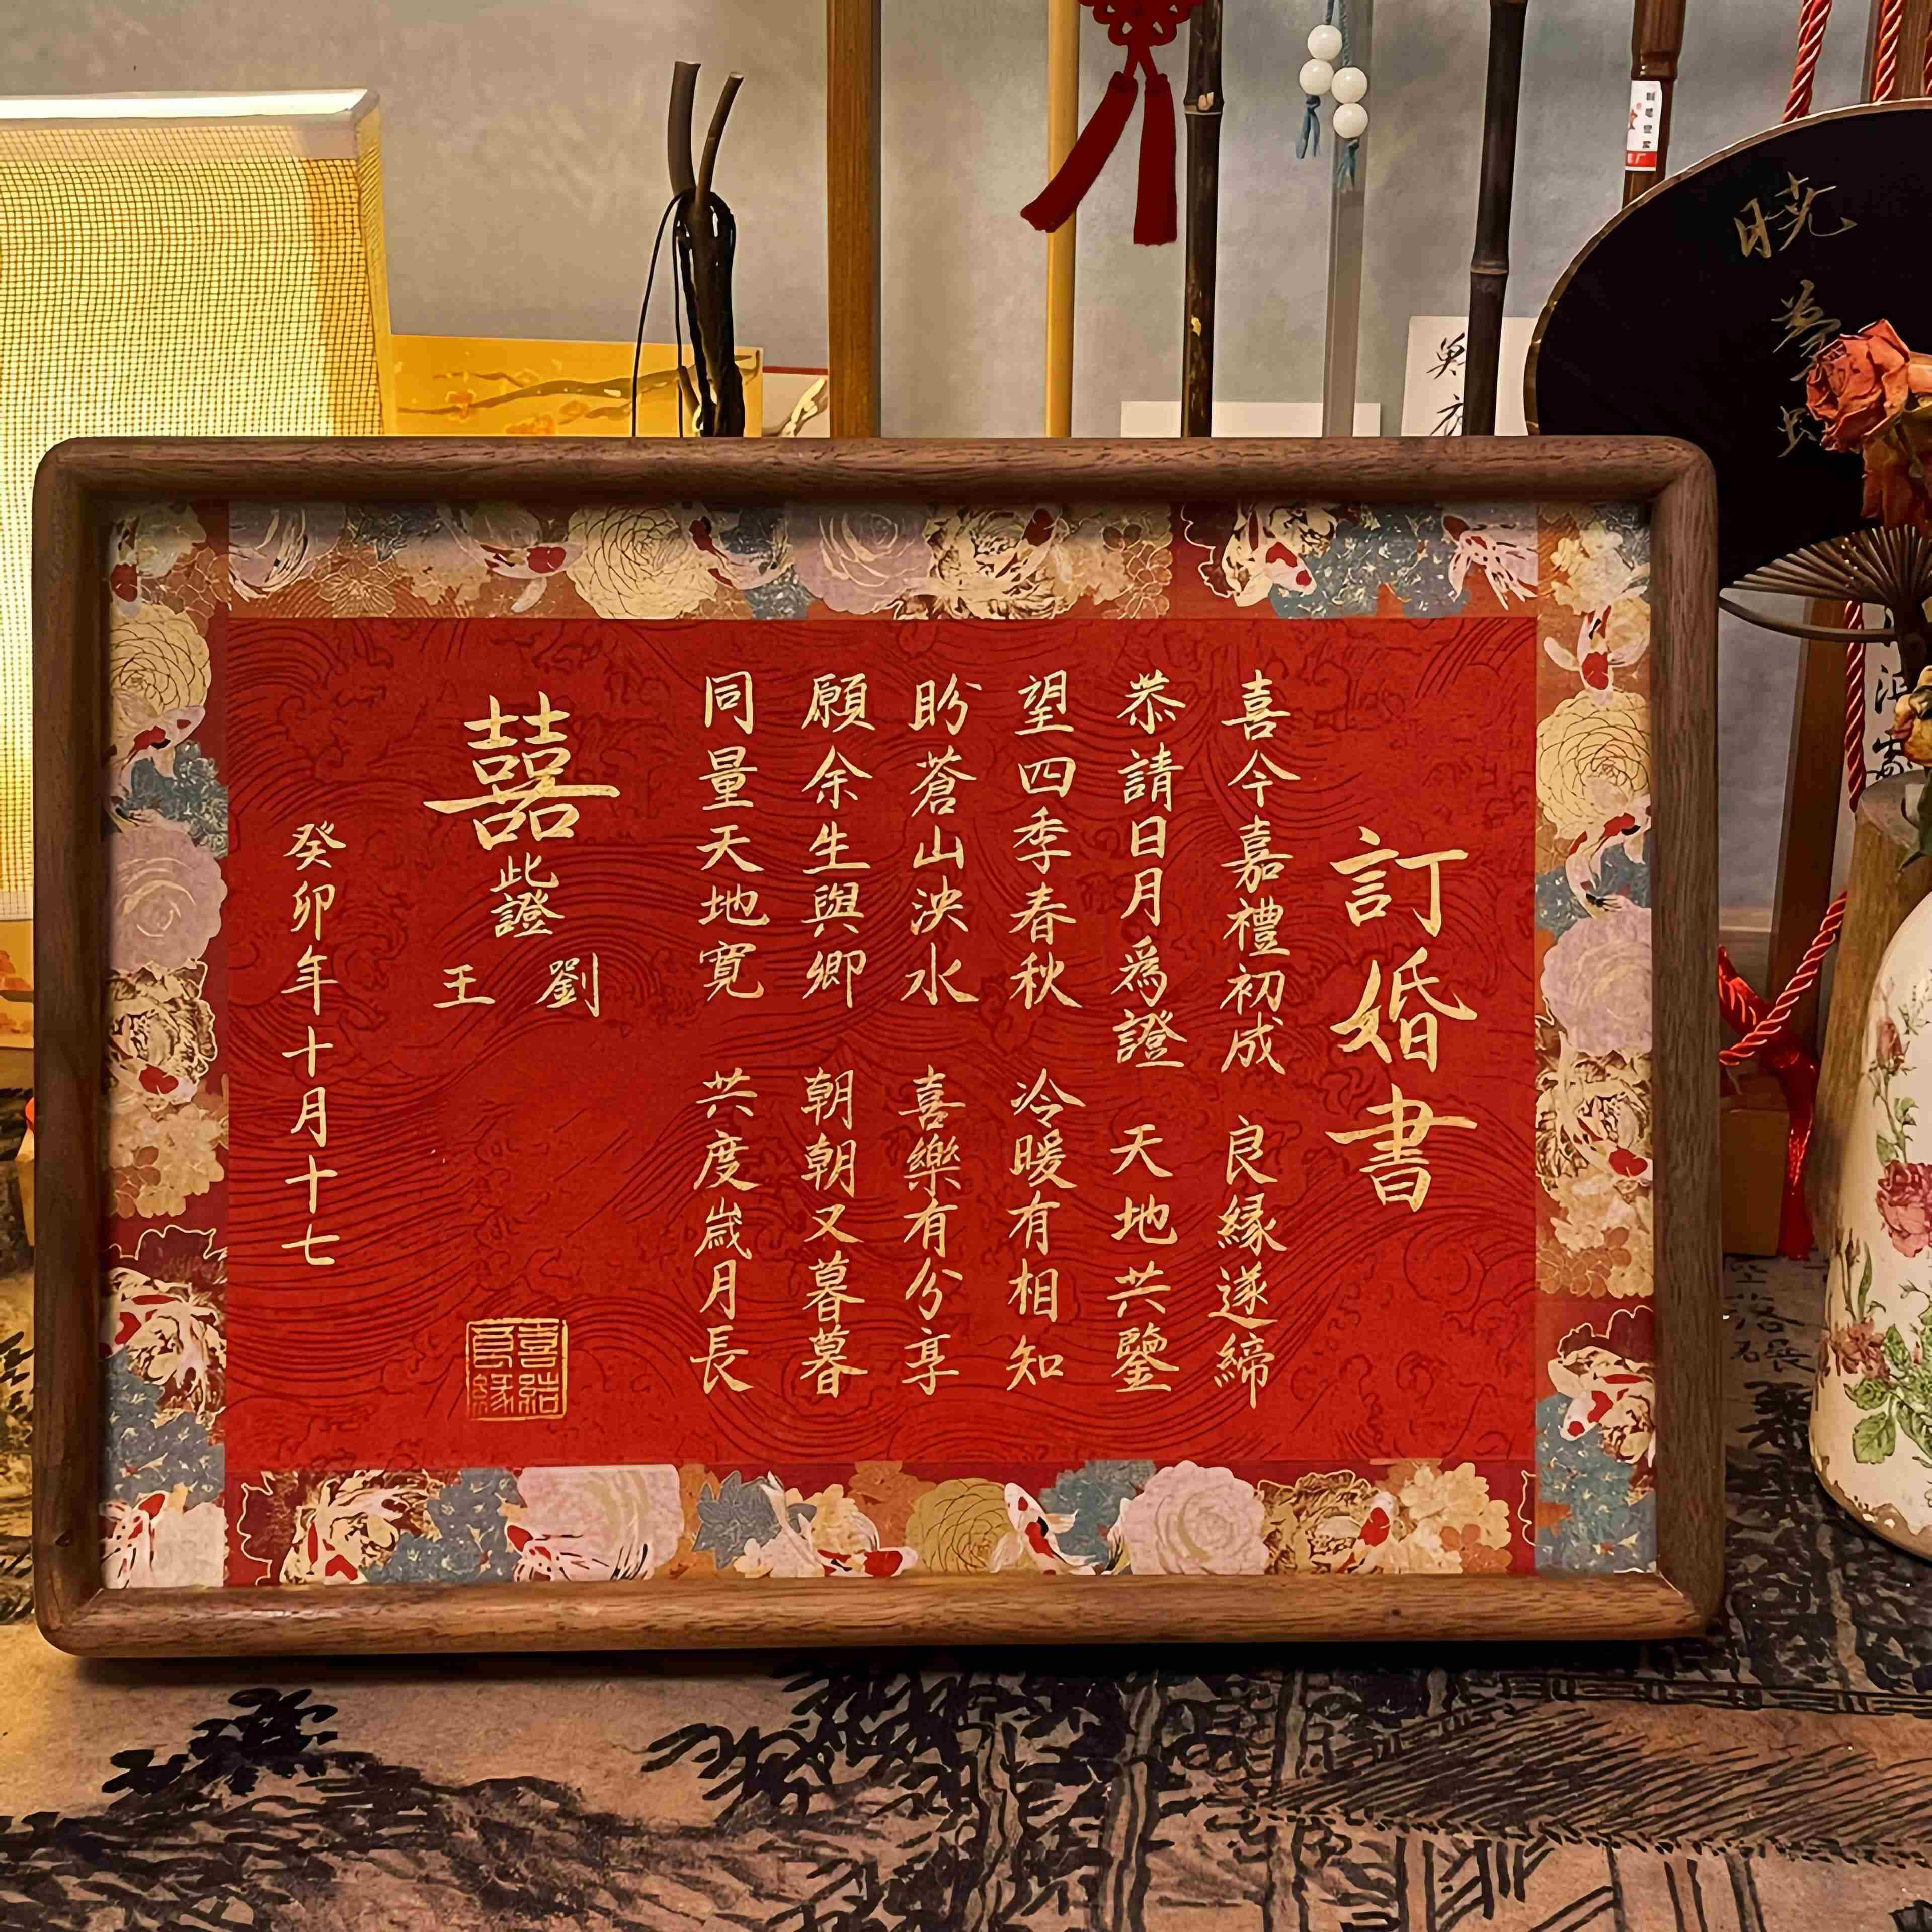 訂婚書
喜今嘉禮初成 良緣遂締
恭請日月為證 天地共鑒
望四季春秋 冷暖有相知
盼蒼山泱水 喜樂有分享
願余生與卿 朝朝又暮暮
同量天地寬 共度歲月長
囍
此證
劉
王
癸卯年十月十七
喜結良緣
曉夢